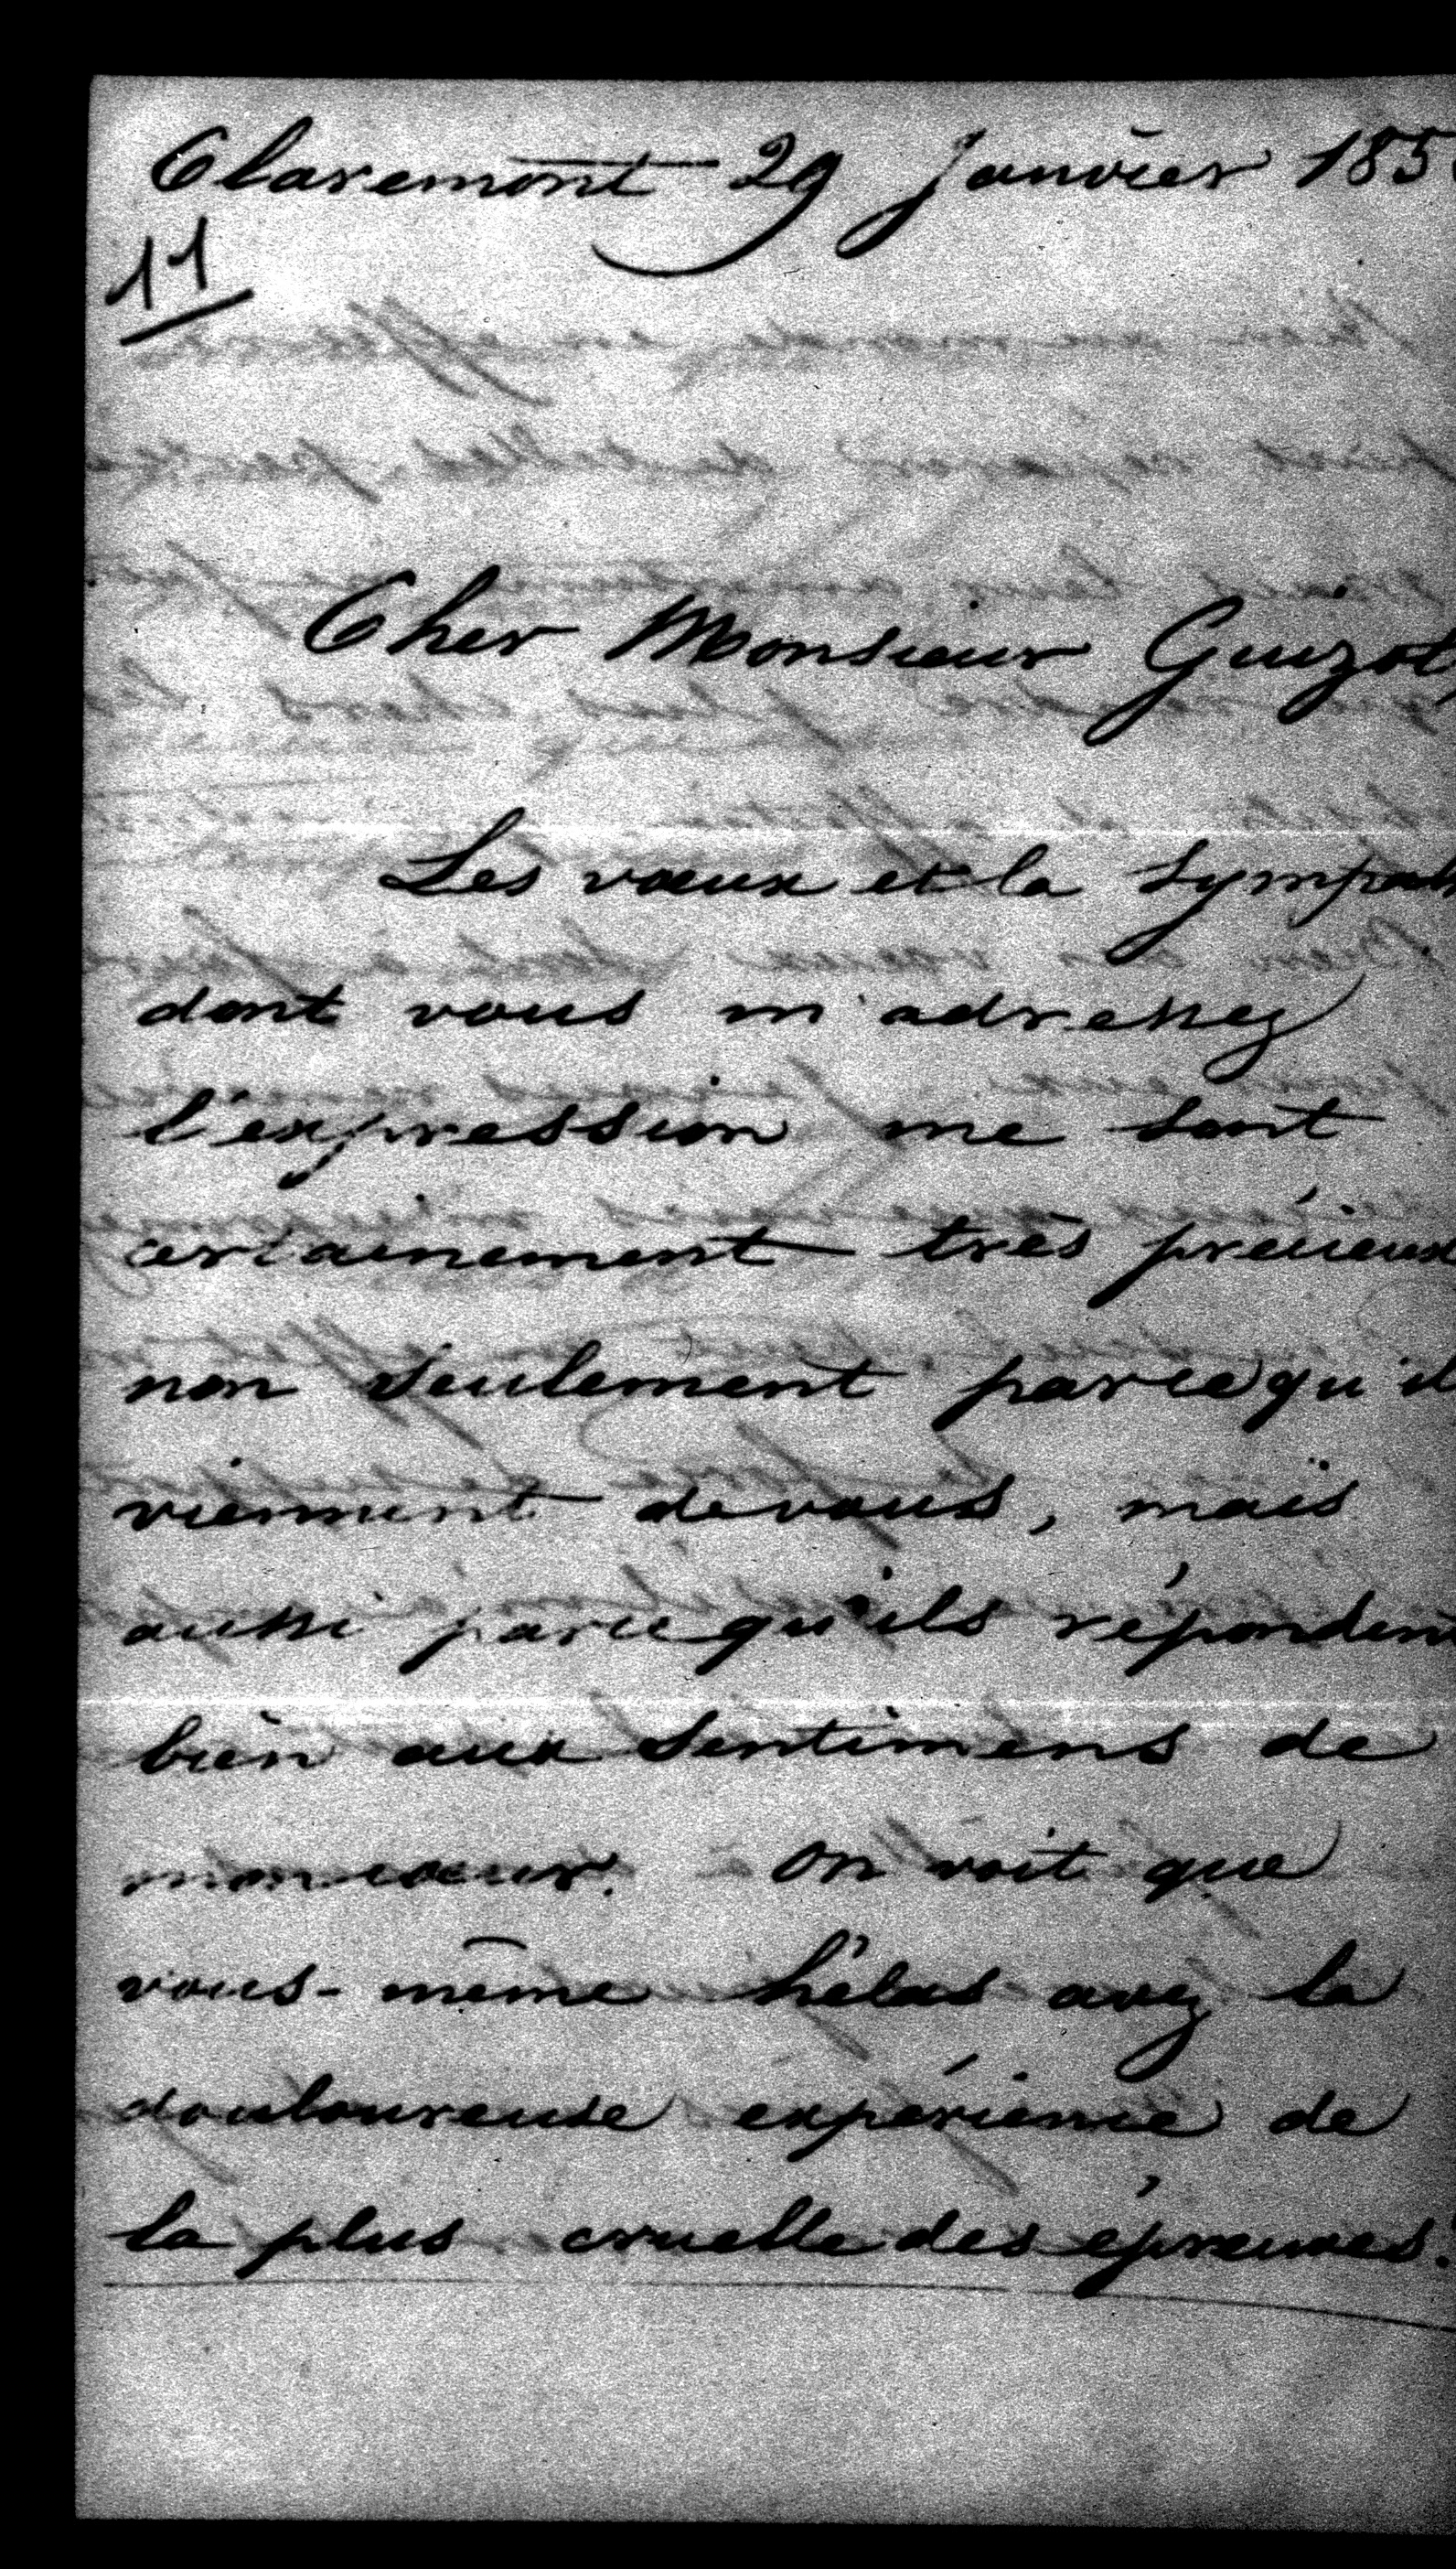 Claremont 29 Janvier 185
11
Cher Monsieur Guizot,
Les vœux et la sympath
dont vous m'adressez
l'expression me sont
certainement très précieux
non seulement parcequ'il
viennent de vous, mais
aussi parcequ'ils répondent
bien aux sentimens de
mon cœur. On voit que
vous-même hélas avez la
douloureuse expérience de
la plus cruelle des épreuves.